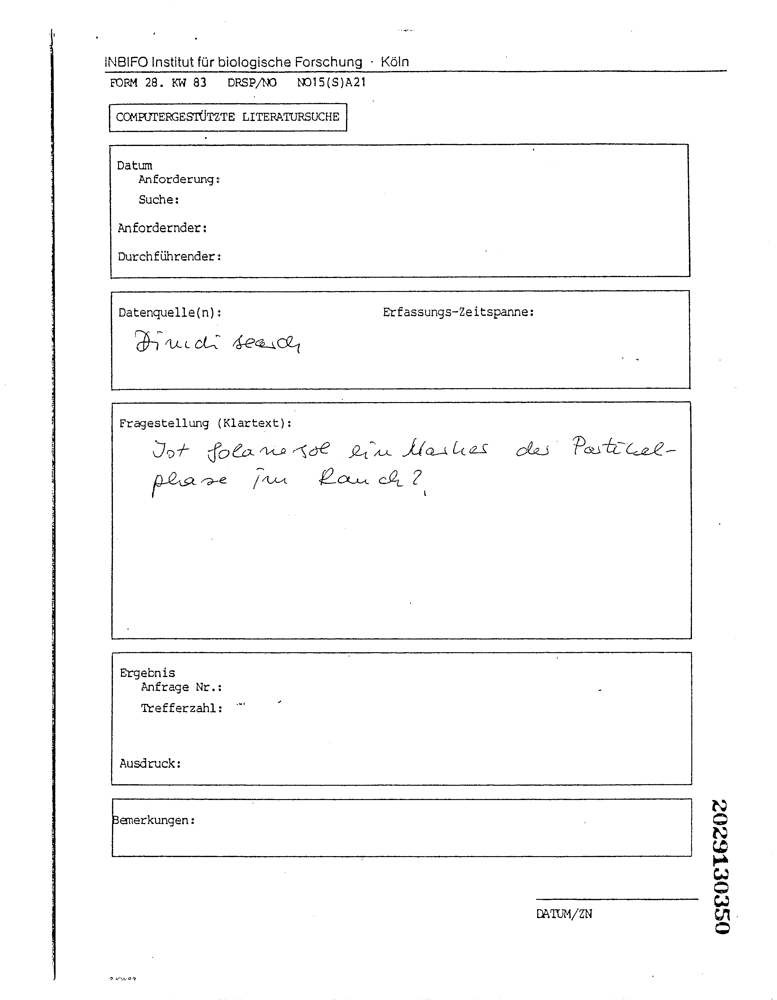 INBIFO Institut für biologische Forschung · Köln
FORM 28. KW 83 DRSP/NO NO15(S)A21
COMPUTERGESTÜTZTE LITERATURSUCHE
Datum
Anforderung:
Suche:
Anfordernder:
Durchführender:
Datenquelle(n): Erfassungs-Zeitspanne:
search
Fragestellung (Klartext):
Ist Solanesol ein Marker der Partikel-
phase im Rauch?
Ergebnis
Anfrage Nr.:
Trefferzahl:
Ausdruck:
Bemerkungen:
DATUM/ZN
2029130350